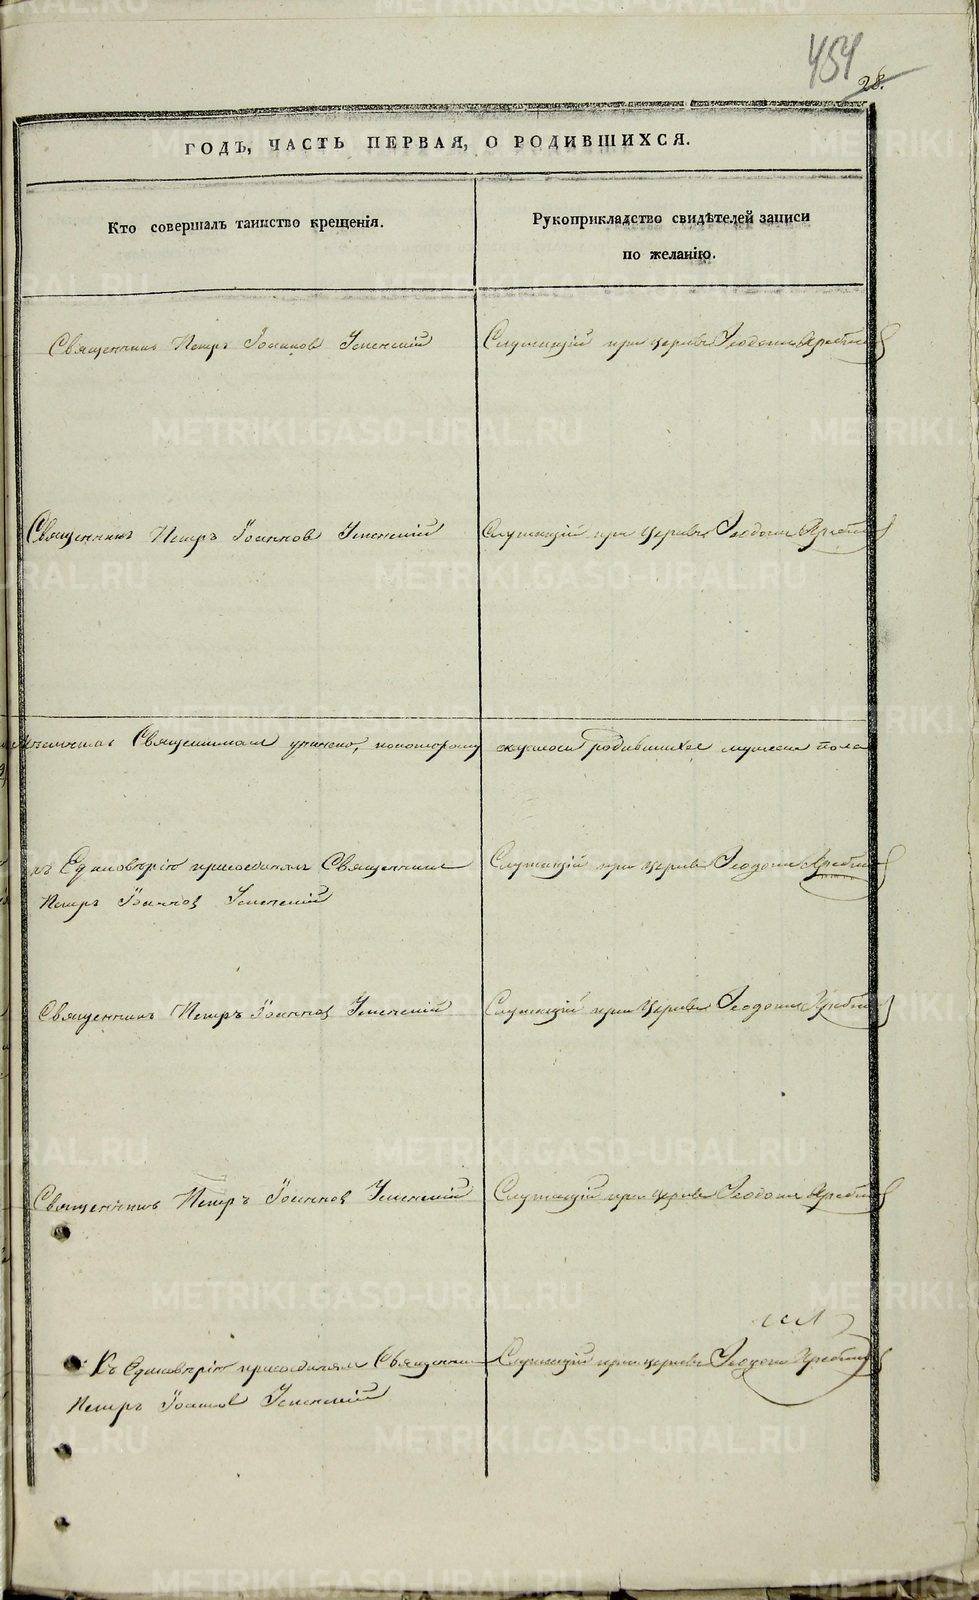 454
28.
ГОДЪ, ЧАСТЬ ПЕРВАЯ, О РОДИВШИХСЯ.
Кто совершалъ таинство крещенія.
Рукоприкладство свидѣтелей записи
по желанію.
Священникъ Петръ Іоанновъ Успенскій
Служащій при церкви Ѳеодотъ
Священникъ Петръ Іоанновъ Успенскій
Служащій при церкви Ѳеодотъ
родившихся мужеска пола
къ Единовѣрію присоединялъ Священникъ
Петръ Іоанновъ Успенскій
Служащій при церкви Ѳеодотъ
Священникъ Петръ Іоанновъ Успенскій
Служащій при церкви Ѳеодотъ
Священникъ Петръ Іоанновъ Успенскій
Служащій при церкви Ѳеодотъ
Къ Единовѣрію присоединялъ Священникъ
Петръ Іоанновъ Успенскій
Служащій при церкви Ѳеодотъ
METRIKI.GASO-URAL.RU